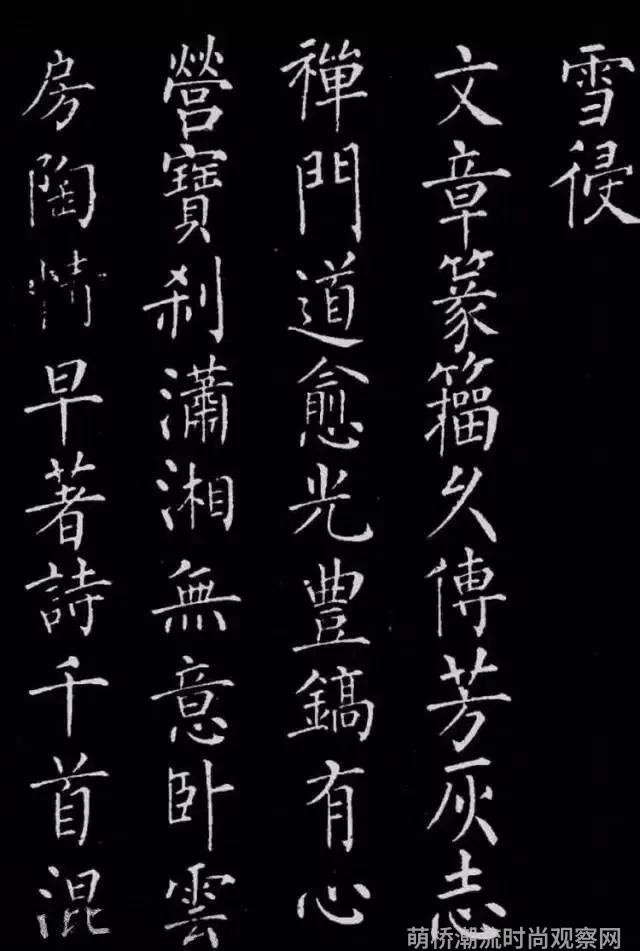 雪侵
文章篆籀久傳芳灰志
禪門道愈光豊鎬有心
營寶刹瀟湘無意卧雲
房陶情早著詩千首混
萌桥潮流时尚观察网